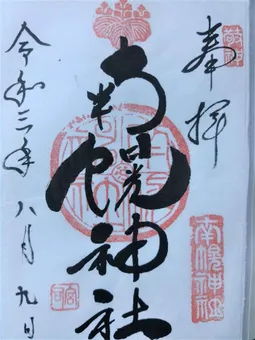 奉拝
南幌神社
南幌神社
令和三年八月九日
宮司